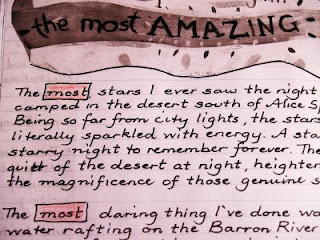 the most AMAZING
The most stars I ever saw the night
camped in the desert south of Alice Sp
Being so far from city lights, the stars
literally sparkled with energy. A sta
starry night to remember forever. The
quiet of the desert at night, heighten
the magnificence of those genuine s
The most daring thing I've done wa
water rafting on the Barron River